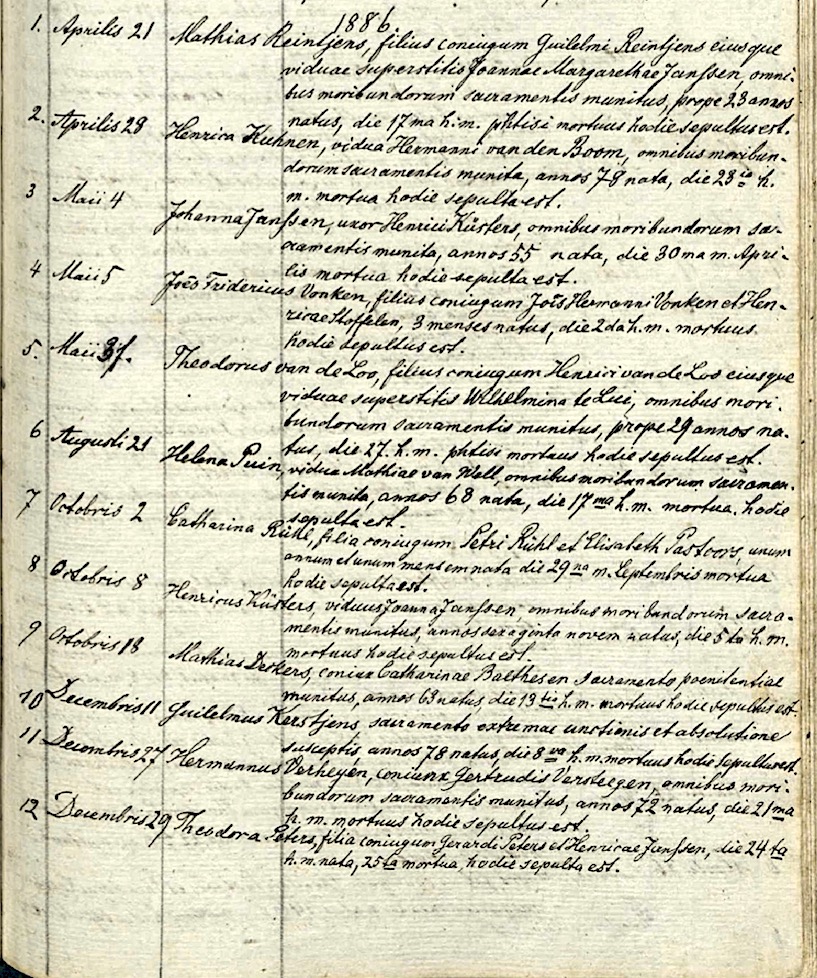 1886.
1. Aprilis 21 Mathias Reintjens, filius coniugum Guilelmi Reintjens eiusque
viduae superstitis Joannae Margarethae Janssen, omni-
bus moribundorum sacramentis munitus, prope 23 annos
natus, die 17ma h.m. phtisi mortuus hodie sepultus est.
2. Aprilis 28 Henrica Kuhnen, vidua Hermanni van den Boom, omnibus moribun-
dorum sacramentis munita, annos 78 nata, die 23io h.
m. mortua hodie sepulta est.
3 Maii 4 Johanna Janssen, uxor Henrici Küsters, omnibus moribundorum sa-
cramentis munita, annos 55 nata, die 30ma m. Apri-
lis mortua hodie sepulta est.
4 Maii 5 Joēs Fridericus Vonken, filius coniugum Joēs Hermanni Vonken et Hen-
ricae Stoffelen, 3 menses natus, die 2da h.m. mortuus
hodie sepultus est.
5. Maii 31. Theodorus van de Loo, filius coniugum Henrici van de Loo eiusque
viduae superstitis Wilhelmina te Lui, omnibus mori-
bundorum sacramentis munitus, prope 29 annos na-
tus, die 27. h.m. phtisi mortuus hodie sepultus est.
6 Augusti 21 Helena Puin, vidua Mathiae van Well, omnibus moribundorum sacramen-
tis munita, annos 68 nata, die 17ma h.m. mortua hodie
sepulta est.
7 Octobris 2 Catharina Rühl, filia coniugum Petri Rühl et Elisabeth Pastoors, unum
annum et unum mensem nata die 29na m. Septembris mortua
hodie sepulta est.
8 Octobris 8 Henricus Küsters, viduus Joanna Janssen omnibus moribundorum sacra-
mentis munitus, annos sexaginta novem natus, die 5ta h.m.
mortuus hodie sepultus est.
9 Octobris 18 Mathias Deckers, coniux Catharinae Baethesen sacramento poenitentiae
munitus, annos 63 natus, die 13tio h.m. mortuus hodie sepultus est.
10 Decembris 11 Guilelmus Kerstjens, sacramento extremae unctionis et absolutione
susceptis annos 78 natus, die 8va h.m. mortuus hodie sepultus est.
11 Decembris 27 Hermannus Verheyen, coniunx Gertrudis Versteegen, omnibus mori-
bundorum sacramentis munitus, annos 72 natus, die 21ma
h.m. mortuus hodie sepultus est.
12 Decembris 29 Theodora Peters, filia coniugum Gerardi Peters et Henricae Janssen, die 24ta
h.m. nata, 25ta mortua, hodie sepulta est.